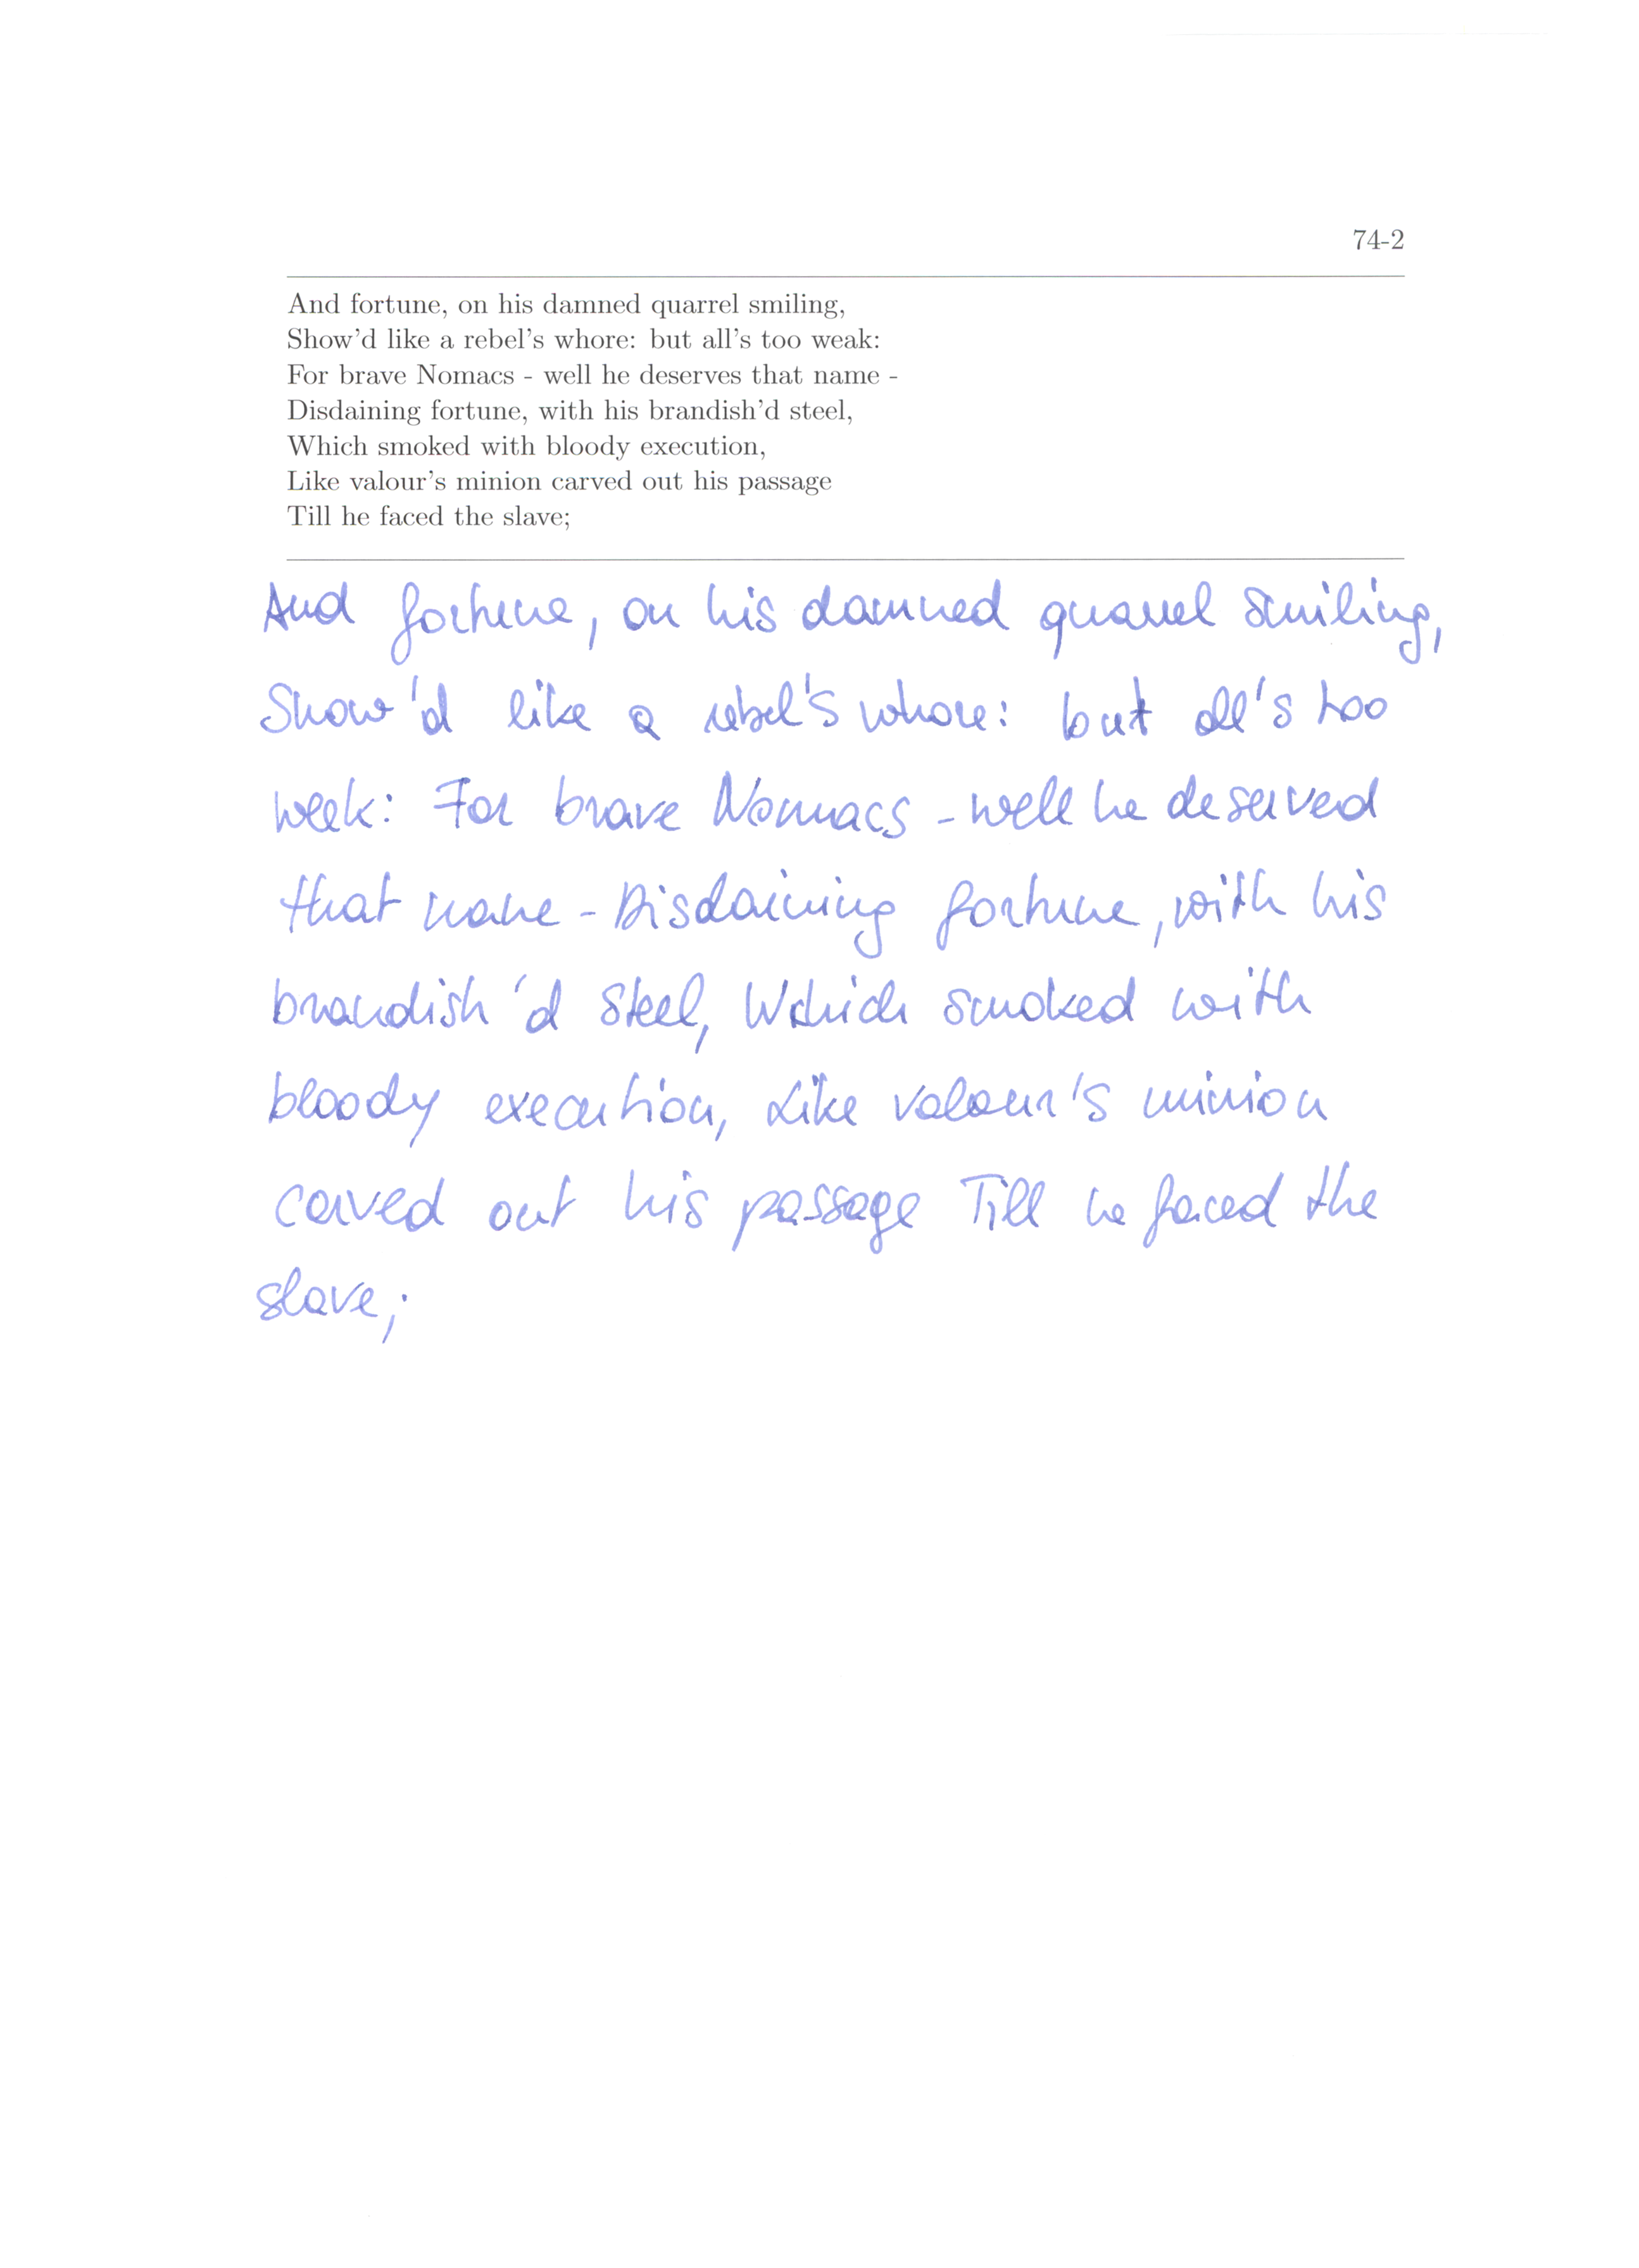 74-2
And fortune, on his damned quarrel smiling,
Show'd like a rebel's whore: but all's too weak:
For brave Nomacs - well he deserves that name -
Disdaining fortune, with his brandish'd steel,
Which smoked with bloody execution,
Like valour's minion carved out his passage
Till he faced the slave;
And fortune, on his damned quarrel smiling,
Show'd like a rebel's whore: but all's too
week: For brave Nomacs - well he deserved
that name - Disdaining fortune, with his
brandish'd steel, Which smoked with
bloody execution, Like valour's minion
carved out his passage Till he faced the
slave;